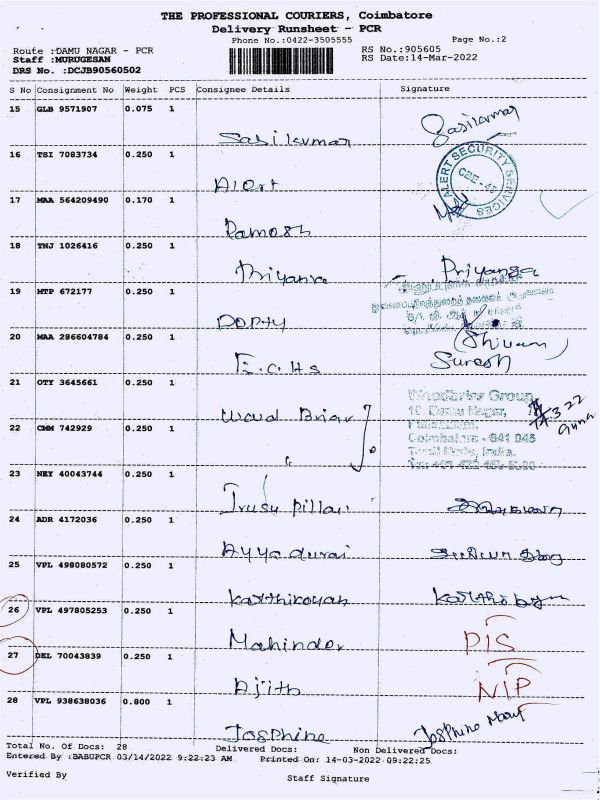 THE PROFESSIONAL COURIERS, Coimbatore
Delivery Runsheet - PCR
Phone No.:0422-3505555 Page No.:2
Route :DAMU NAGAR - PCR RS No.:905605
Staff :MURUGESAN RS Date:14-Mar-2022
DRS No. :DCJB90560502
S No Consignment No Weight PCS Consignee Details Signature
15 GLB 9571907 0.075 1
Sasikumar Sasikumar
16 TSI 7083734 0.250 1
Alert ALERT SECURITY SERVICES CBE - 45
17 MAA 564209490 0.170 1
Ramesh
18 TNJ 1026416 0.250 1
Priyanka Priyanga
19 MTP 672177 0.250 1
20 MAA 286604784 0.250 1
E.C.H.S Suresh
21 OTY 3645661 0.250 1
Woodbriar Group
Wood Briar 10, Damu Nagar,
22 CMM 742929 0.250 1
Coimbatore - 641 045
Tamil Nadu, India.
23 NEY 40043744 0.250 1
Pillai
24 ADR 4172036 0.250 1
Ayyadurai
25 VPL 498080572 0.250 1
Karthikeyan
26 VPL 497805253 0.250 1
Mahinder DIS
27 DEL 70043839 0.250 1
Ajith N/P
28 VPL 938638036 0.800 1
Josphine Josphine Mary
Total No. Of Docs: 28 Delivered Docs: Non Delivered Docs:
Entered By :BABUPCR 03/14/2022 9:22:23 AM Printed On: 14-03-2022 09:22:25
Verified By Staff Signature